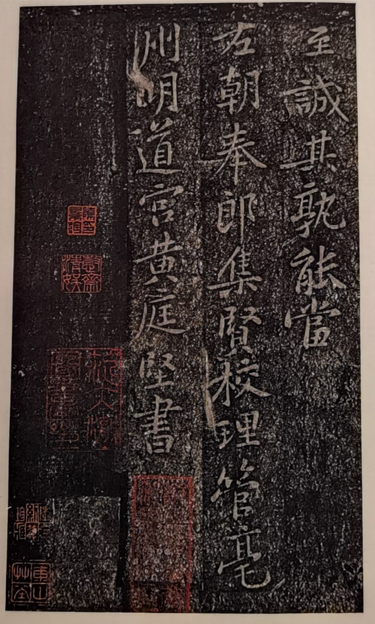 至誠其孰能當
右朝奉郎集賢校理管亳
州明道宮黄庭堅書